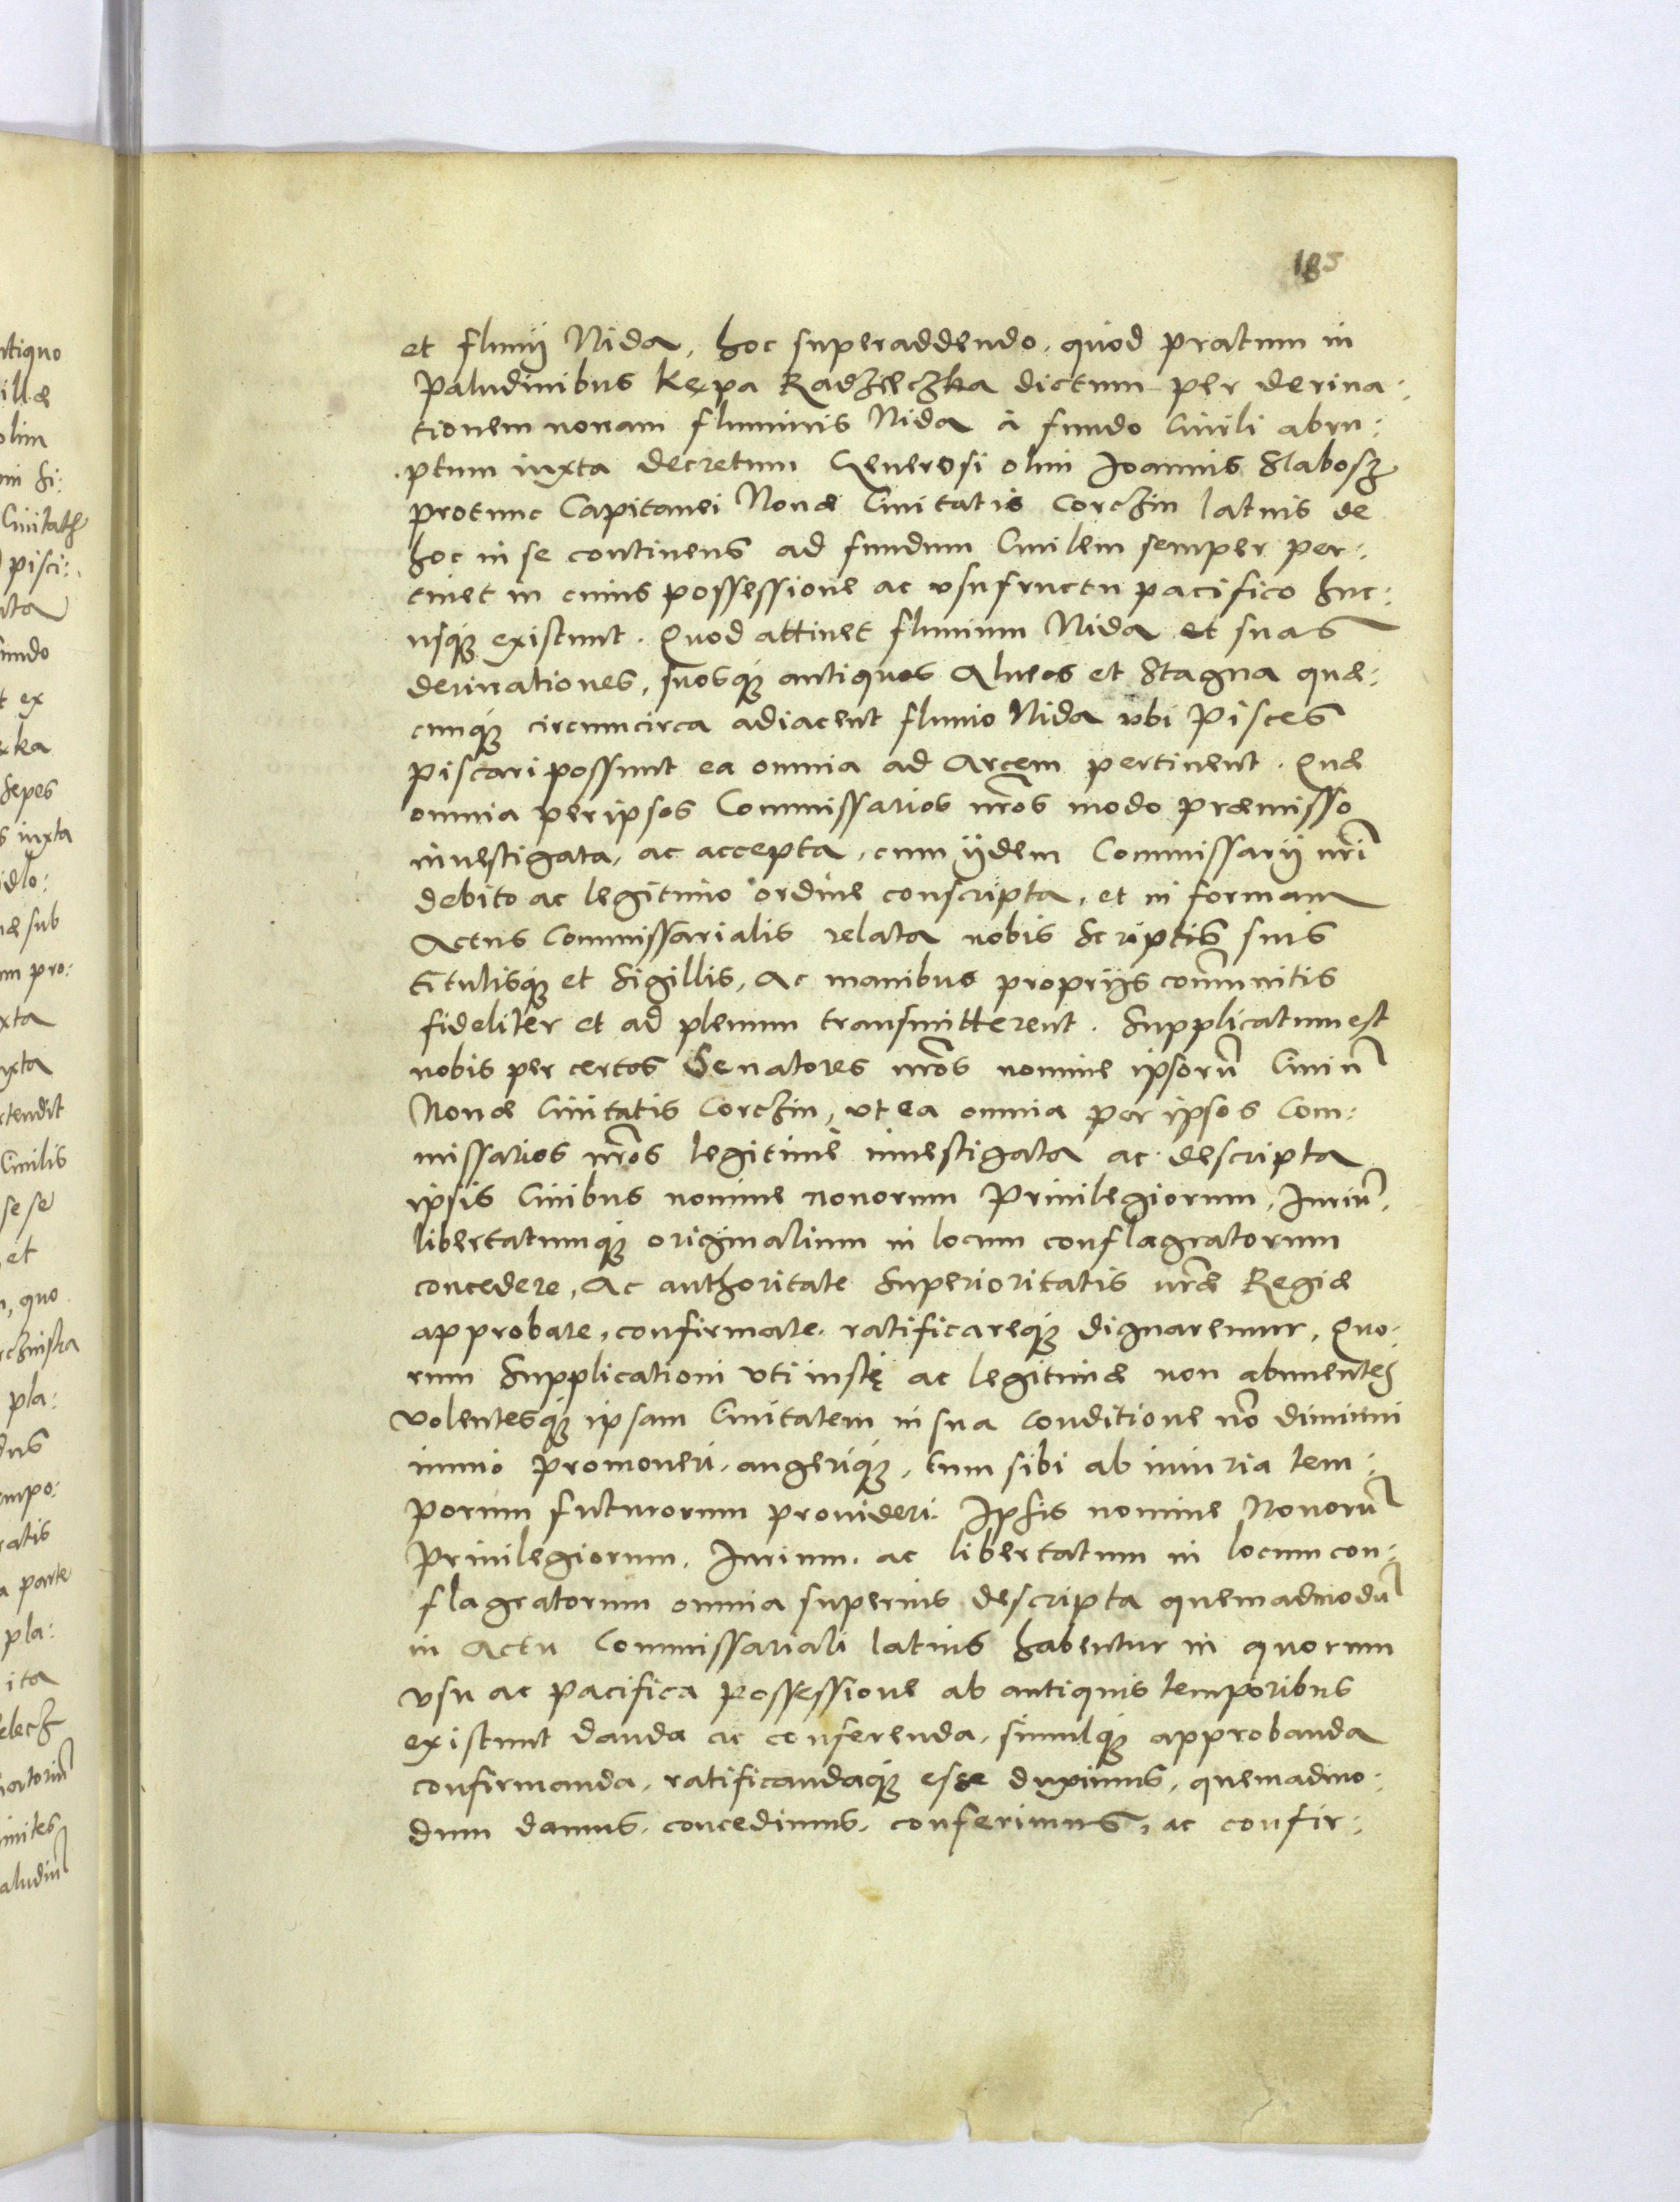 185
et fluuij Nida, hoc superaddendo, quòd pratum in
Paludinibus Kępa Radzieczka dictum per deriua:
tionem nouam fluminis Nida à fundo Ciuili abru:
ptum iuxta decretum Generosi olim Joannis Slabosz
protunc Capitanei Nouæ Ciuitatis Corczin latius de
hoc in se continens ad fundum Ciuilem semper per:
tinet in cuius possessione ac vsufructu pacifico huc:
usq́ue existunt. Quod attinet fluuium Nida et suas
deriuationes, suosq́ue antiquos Alueos et Stagna quæ:
cunq́ue circumcirca adiacent fluuio Nida vbi Pisces
piscari possunt ea omnia ad Arcem pertinent. Quæ
omnia per ipsos Commissarios nr̃os modo præmisso
inuestigata, ac accepta, cum ijdem Commissarij nr̃i
debito ac legitimo ordine conscripta, et in formam
Actus Commissarialis relata nobis Scriptis suis
titulisq́ue et Sigillis, Ac manibus proprijs com̃unitis
fideliter et ad plenum transmitterent. Supplicatum est
nobis per certos Senatores nr̃os nomine ipsorũ Ciuiũ
Nouæ Ciuitatis Corczin, vt ea omnia per ipsos Com:
missarios nr̃os legitimè inuestigata ac descripta
ipsis Ciuibus nomine nouorum Priuilegiorum, Juriũ,
libertatumq́ue originalium in locum conflagratorum
concedere, Ac authoritate Superioritatis nr̃æ Regiæ
approbare, confirmare, ratificareq́ue dignaremur, Quo:
rum Supplicationi vti iustę ac legitimæ non abnuentes
volentesq́ue ipsam Ciuitatem in sua conditione nõ diminui
immò promoueri, augeriq́ue, tum sibi ab iniuria tem:
porum futurorum prouideri. Ipsis nomine Nouorũ
Priuilegiorum, Jurium, ac libertatum in locum con:
flagratorum omnia superius descripta quemadmodũ
in Actu Commissariali latius habentur in quorum
vsu ac pacifica possessione ab antiquis temporibus
existunt danda ac conferenda, simulq́ue approbanda
confirmanda, ratificandaq́ue esse duximus, quemadmo:
dum damus, concedimus, conferimus, ac confir: